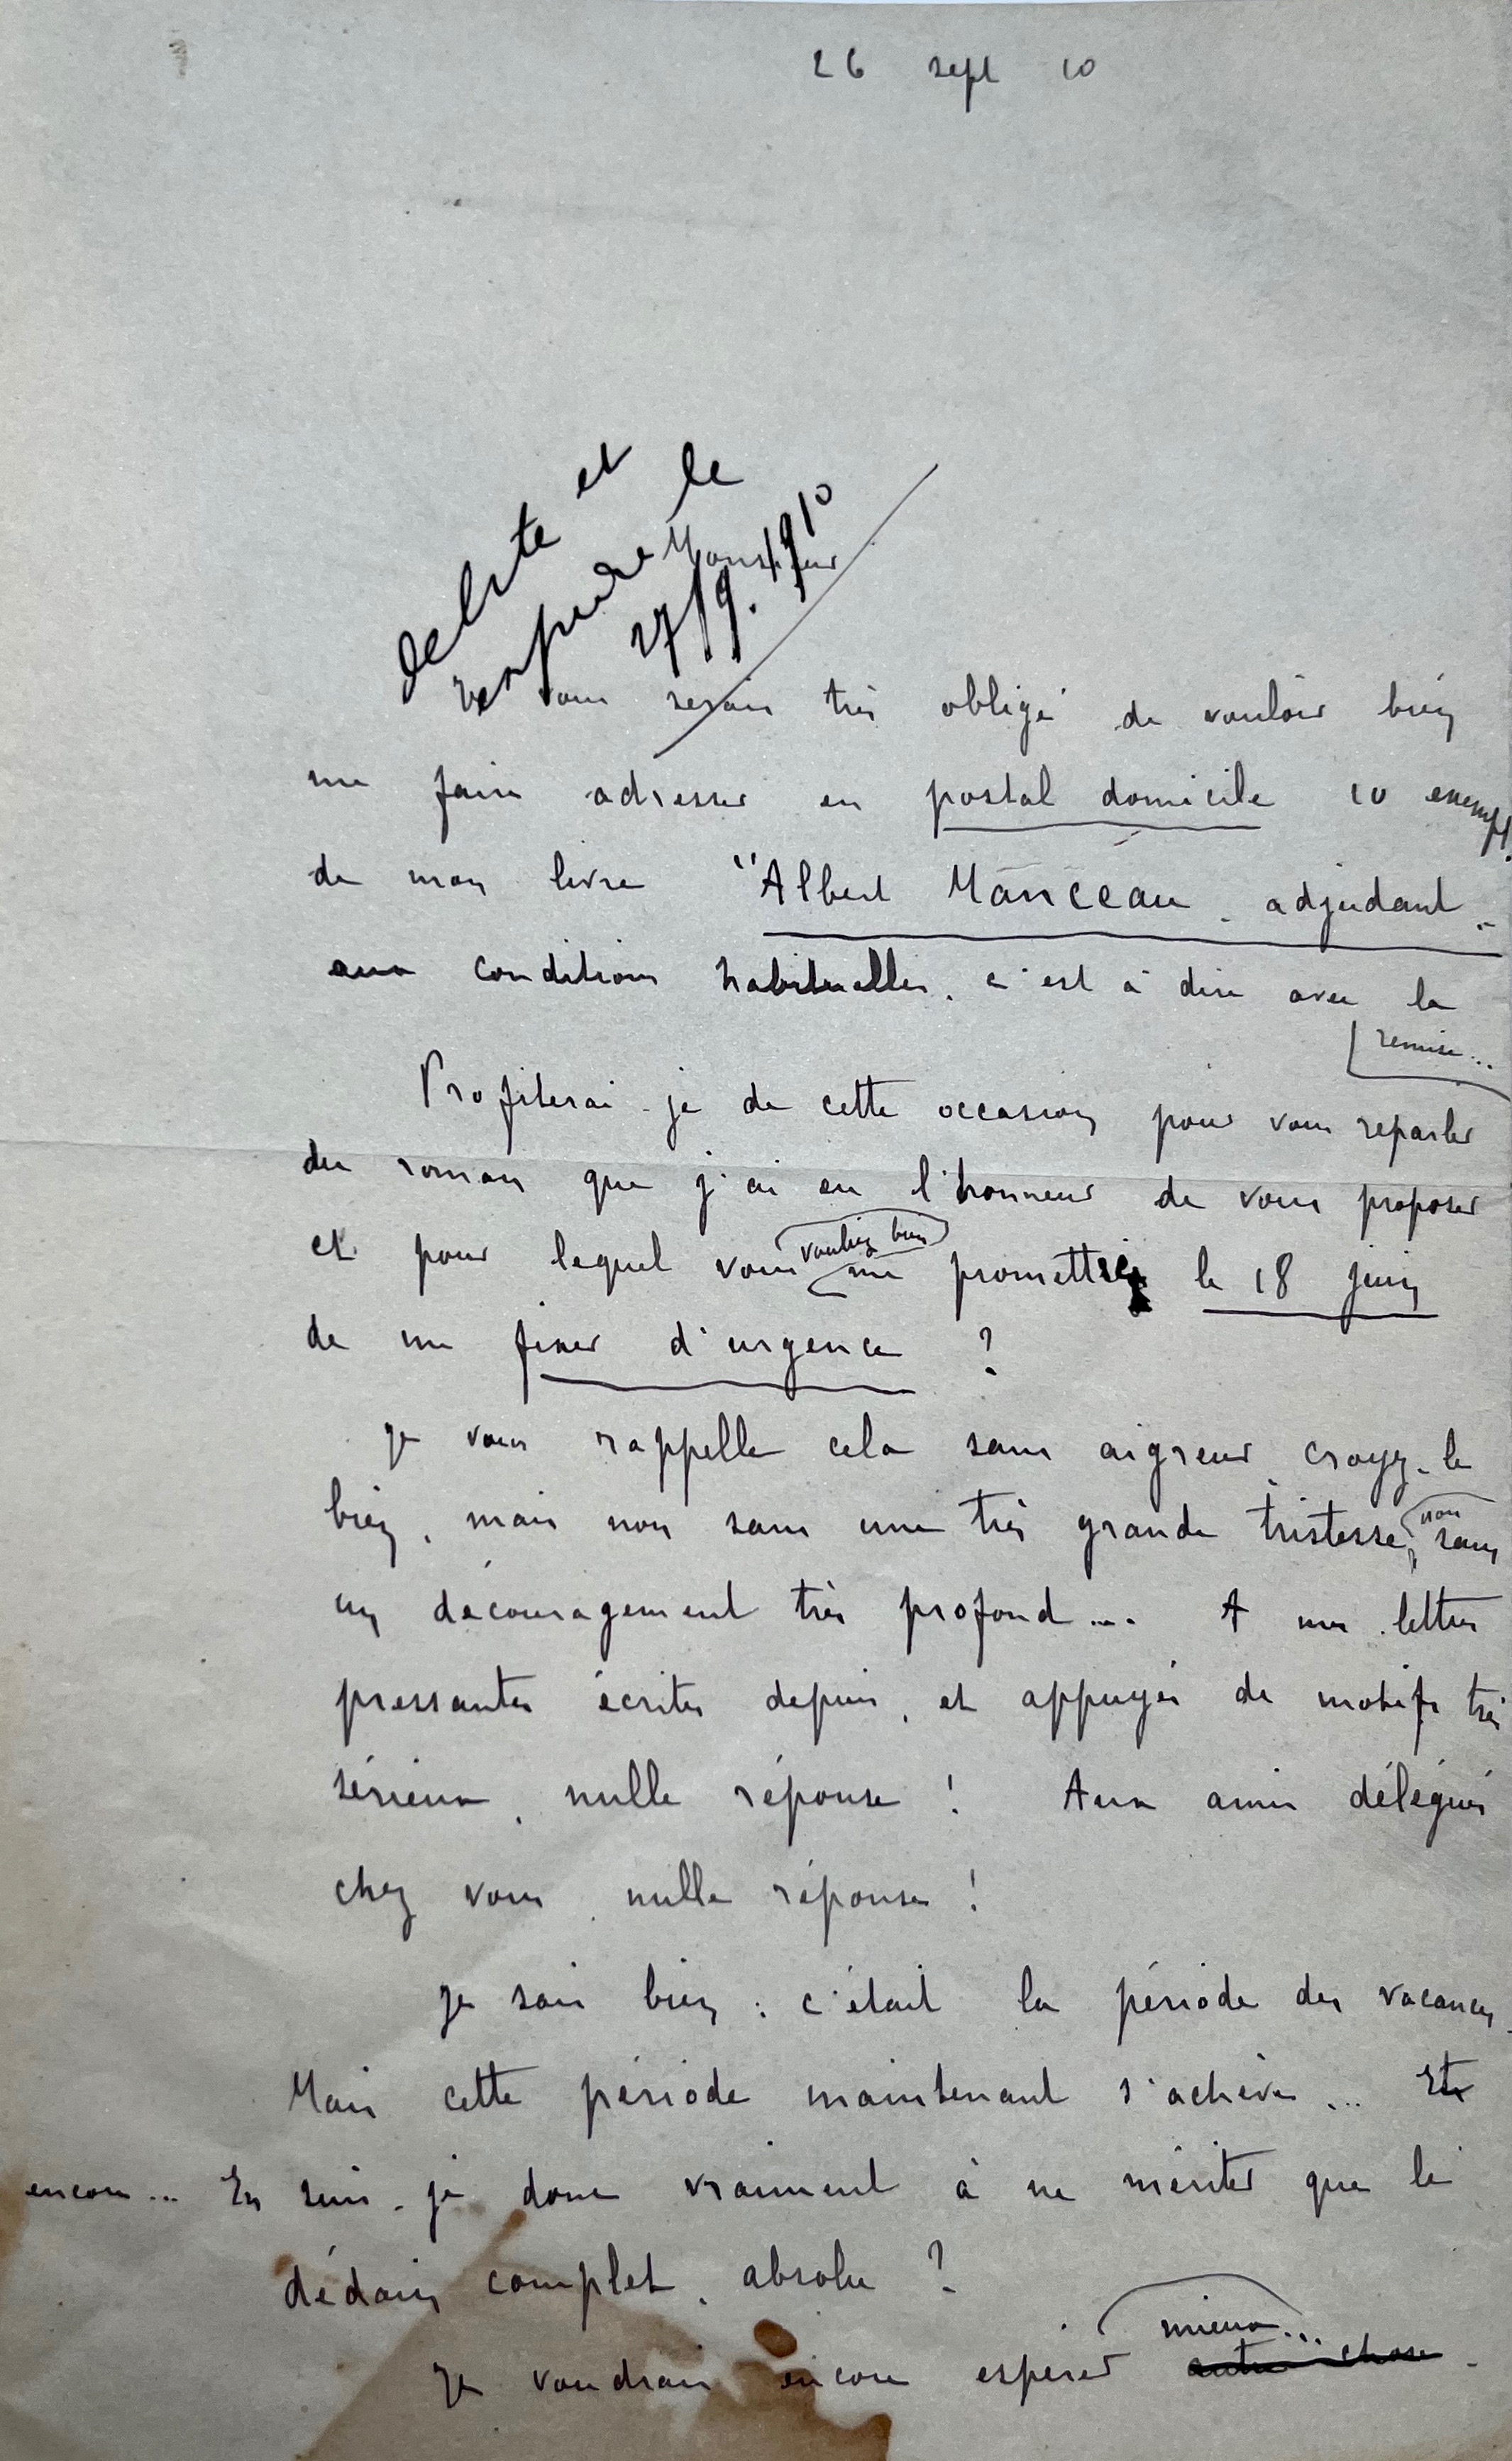 26 sept 10
debite et
repondre le
27/9.1910
Monsieur
vous serais très obligé de vouloir bien
me faire adresser en postal domicile 10 exempl.
de mon livre "Albert Manceau. adjudant"
aux conditions habituelles, c'est à dire avec la
remise...
Profiterai-je de cette occasion pour vous reparler
du roman que j'ai eu l'honneur de vous proposer
et pour lequel vous vouliez bien me promettre le 18 juin
de me fixer d'urgence ?
Je vous rappelle cela sans aigreur, croyez-le
bien, mais non sans une très grande tristesse, non sans
un découragement très profond... A mes lettres
pressantes écrites depuis, et appuyées de motifs très
sérieux, nulle réponse ! Aux amis délégués
chez vous, nulle réponse !
Je sais bien : c'était la période des vacances.
Mais cette période maintenant s'achève... Et
encore... En suis-je donc vraiment à ne mériter que le
dédain complet, absolu ?
Je voudrais encore espérer mieux... autre chose.